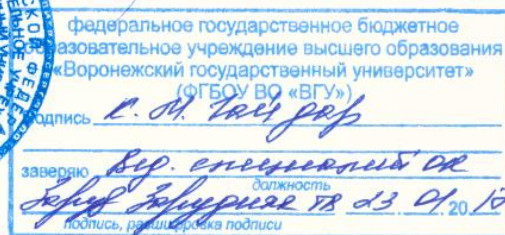 федеральное государственное бюджетное
образовательное учреждение высшего образования
«Воронежский государственный университет»
(ФГБОУ ВО «ВГУ»)
подпись К. М. Гайдар
заверяю Вед. специалист ОК
должность
Зарудняя 23 01 2017
подпись, расшифровка подписи